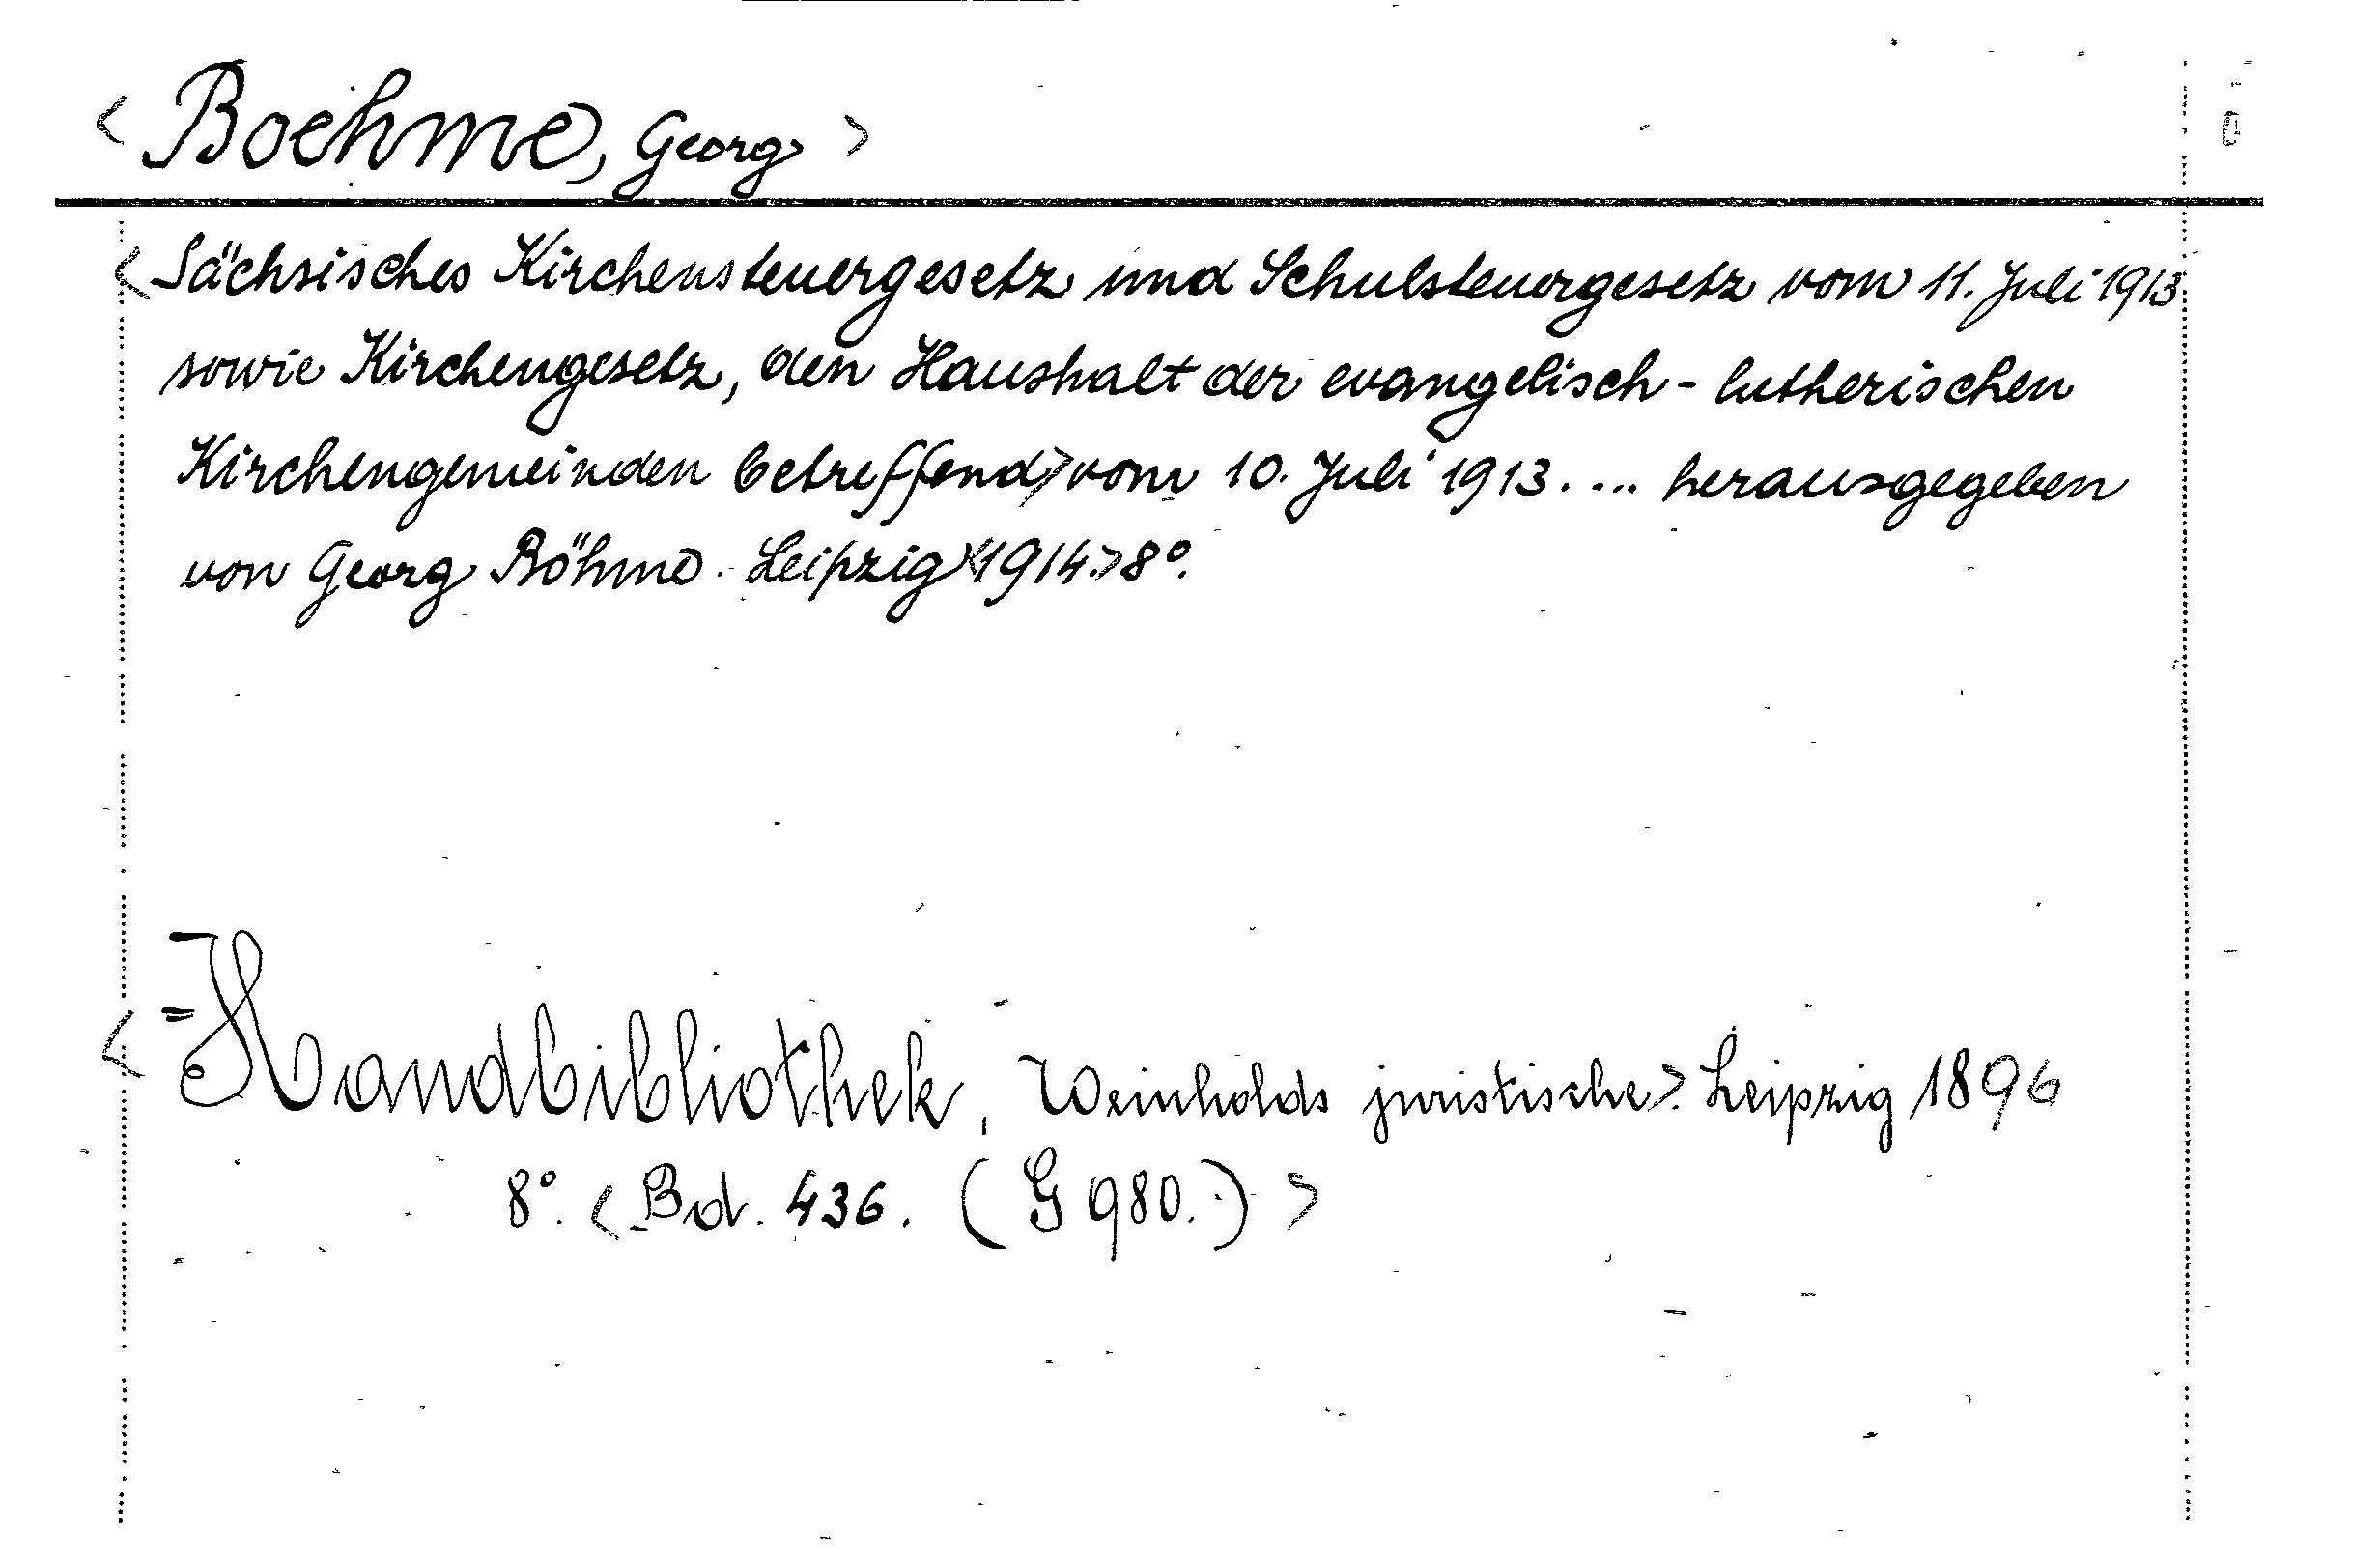 < Boehme, Georg >
< Sächsisches Kirchensteuergesetz und Schulsteuergesetz vom 11. Juli 1913
sowie Kirchengesetz, den Haushalt der evangelisch-lutherischen
Kirchengemeinden betreffend> vom 10. Juli 1913. ... herausgegeben
von Georg Böhme. Leipzig <1914.> 8°.
< = Handbibliothek, Weinholds juristische>. Leipzig 1896
8°. < Bd. 436. (G 980.) >